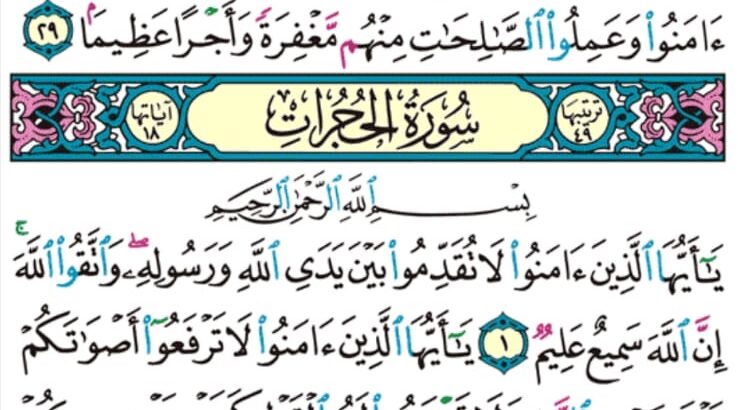 ءَامَنُوا۟ وَعَمِلُوا۟ ٱلصَّـٰلِحَـٰتِ مِنْهُم مَّغْفِرَةً وَأَجْرًا عَظِيمًۢا ٢٩
ترتيبها ٤٩ سُورَةُ الحُجُرَاتِ آياتها ١٨
بِسْمِ ٱللَّهِ ٱلرَّحْمَـٰنِ ٱلرَّحِيمِ
يَـٰٓأَيُّهَا ٱلَّذِينَ ءَامَنُوا۟ لَا تُقَدِّمُوا۟ بَيْنَ يَدَىِ ٱللَّهِ وَرَسُولِهِۦ ۖ وَٱتَّقُوا۟ ٱللَّهَ ۚ
إِنَّ ٱللَّهَ سَمِيعٌ عَلِيمٌ ١ يَـٰٓأَيُّهَا ٱلَّذِينَ ءَامَنُوا۟ لَا تَرْفَعُوٓا۟ أَصْوَٰتَكُمْ